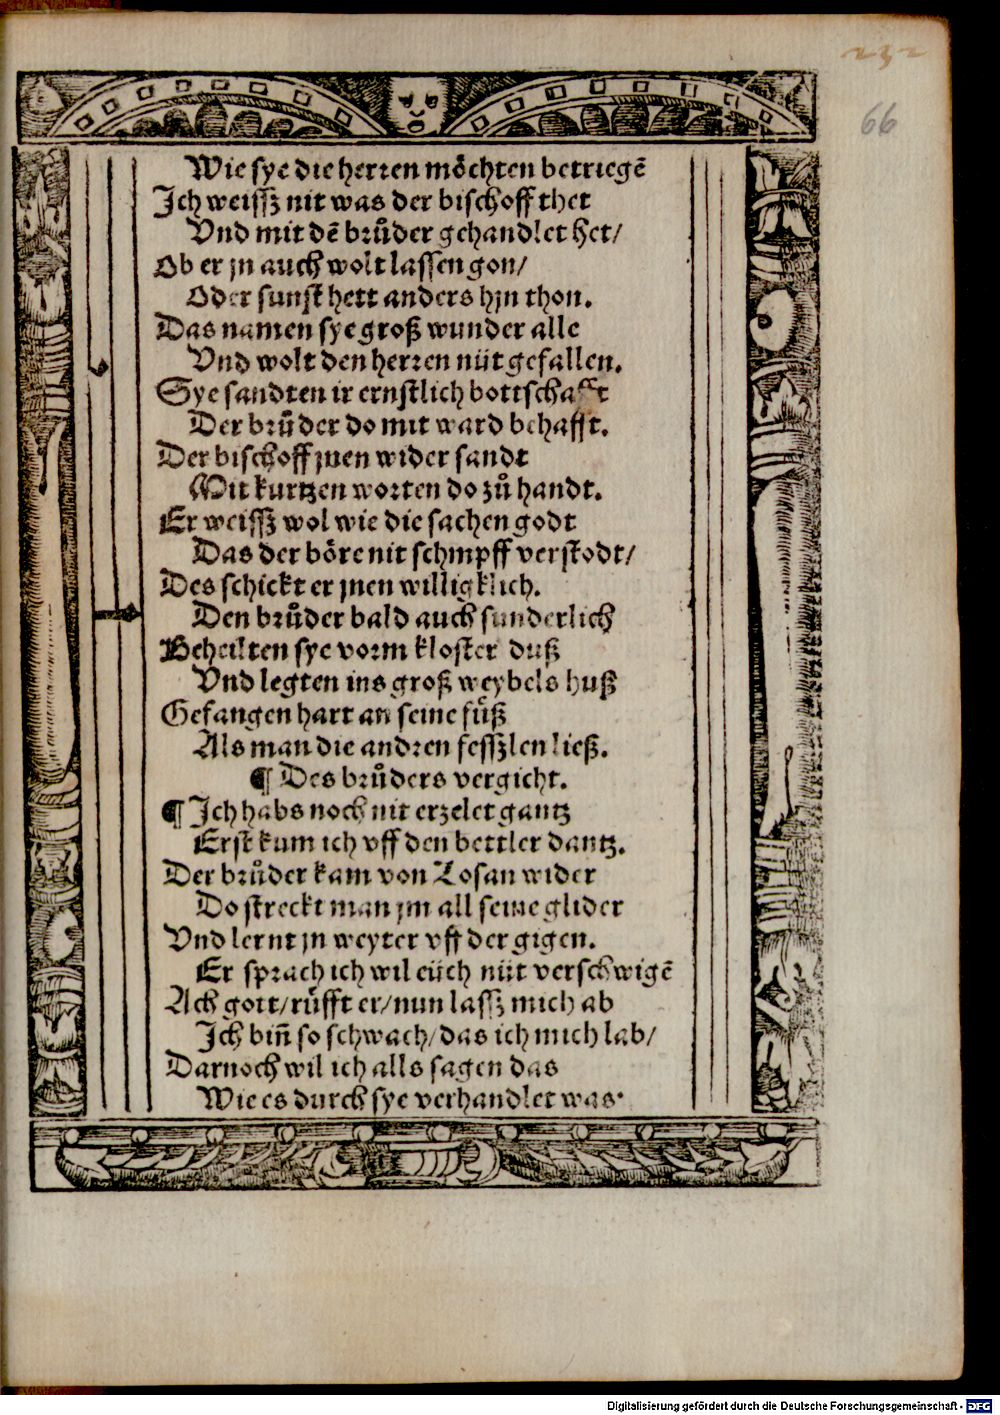 232
66
Wie sye die herren möchten betriegē
Ich weissz nit was der bischoff thet
Vnd mit dē brůder gehandlet het/
Ob er jn auch wolt lassen gon/
Oder sunst hett anders hjn thon.
Das namen sye groß wunder alle
Vnd wolt den herren nüt gefallen.
Sye sandten ir ernstlich bottschafft
Der brůder do mit ward behafft.
Der bischoff jnen wider sandt
Mit kurtzen worten do zů handt.
Er weissz wol wie die sachen godt
Das der böre nit schmpff verstodt/
Des schickt er jnen willigklich.
Den brůder bald auch sunderlich
Beheilten sye vorm kloster duß
Vnd legten ins groß weybels huß
Gefangen hart an seine fůß
Als man die andren fesszlen ließ.
¶ Des brůders vergicht.
¶ Ich habs noch nit erzelet gantz
Erst kum ich vff den bettler dantz.
Der brůder kam von Losan wider
Do streckt man jm all seine glider
Vnd lernt jn weyter vff der gigen.
Er sprach ich wil eüch nüt verschwigē
Ach gott/růfft er/nun lassz mich ab
Ich biñ so schwach/das ich mich lab/
Darnoch wil ich alls sagen das
Wie es durch sye verhandlet was.
Digitalisierung gefördert durch die Deutsche Forschungsgemeinschaft - DFG